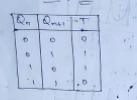 Qn Qn+1 T
0 0 0
0 1 1
1 0 1
1 1 0